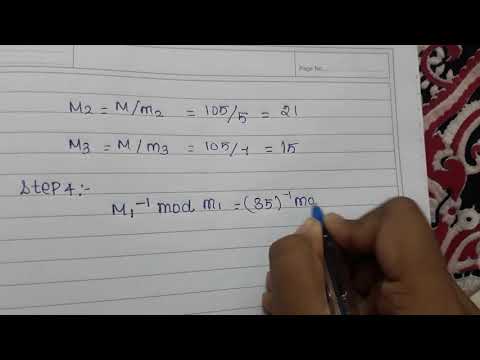 Page No.
M2 = M/m2 = 105/5 = 21
M3 = M/m3 = 105/7 = 15
Step 4:-
M1⁻¹ mod m1 = (35)⁻¹ mo